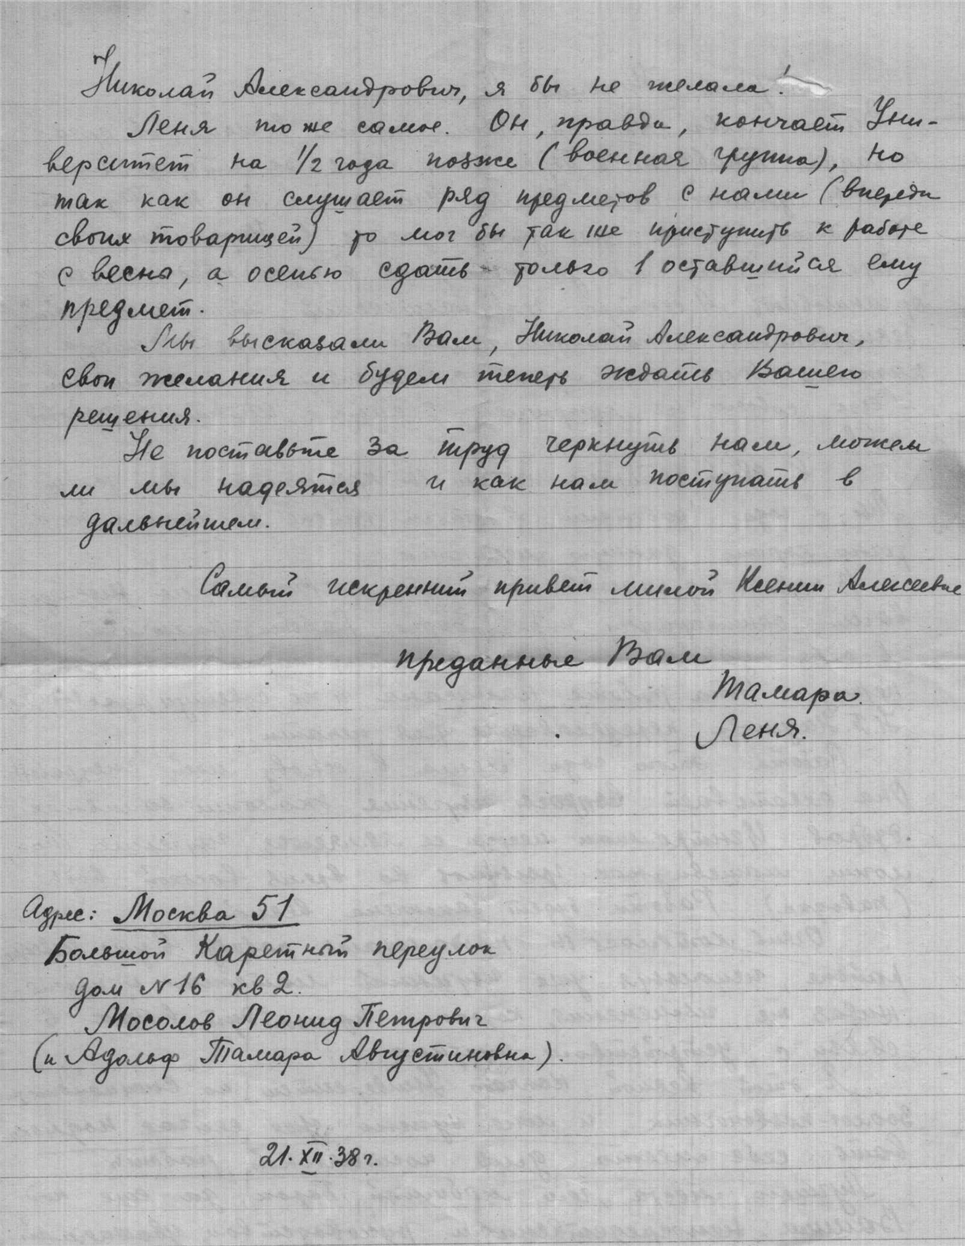 Николай Александрович, я бы не желала!
Леня то же самое. Он, правда, кончает Уни-
верситет на 1/2 года позже (военная группа), но
так как он слушает ряд предметов с нами (впереди
своих товарищей) то мог бы так же приступить к работе
с весны, а осенью сдать только 1 оставшийся ему
предмет.
Мы высказали Вам, Николай Александрович,
свои желания и будем теперь ждать Вашего
решения.
Не поставьте за труд черкнуть нам, можем
ли мы надеятся и как нам поступать в
дальнейшем.
Самый искренний привет милой Ксении Алексеевне
преданные Вам
Тамара.
Леня.
Адрес: Москва 51
Большой Каретный переулок
дом N 16 кв 2.
Мосолов Леонид Петрович
(и Адольф Тамара Августиновна).
21.XII.38 г.